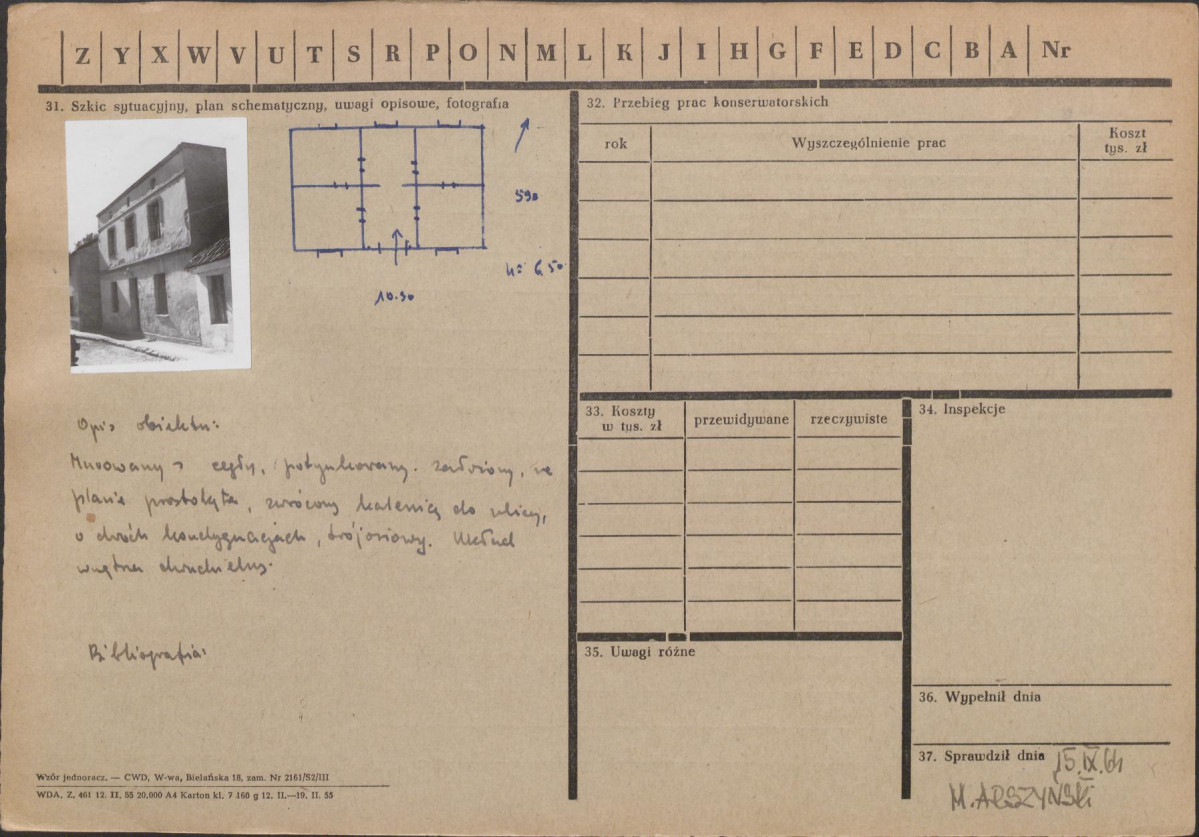 Z Y X W V U T S R P O N M L K J I H G F E D C B A Nr
31. Szkic sytuacyjny, plan schematyczny, uwagi opisowe, fotografia
590
h= 6.50
10.90
Opis obiektu:
Murowany z cegły, potynkowany. zadbziony, na
planie prostokąta, zwrócony kalenicą do ulicy,
o dwóch kondygnacjach, trójosiowy. Układ
wnętrza dwudzielny.
Bibliografia:
Wzór jednoracz. — CWD, W-wa, Bielańska 18, zam. Nr 2161/S2/III
WDA, Z. 461 12. II. 55 20.000 A4 Karton kl. 7 160 g 12. II.—19. II. 55
32. Przebieg prac konserwatorskich
rok Wyszczególnienie prac Koszt
tys. zł
33. Koszty
w tys. zł przewidywane rzeczywiste
34. Inspekcje
35. Uwagi różne
36. Wypełnił dnia
37. Sprawdził dnia 15.IX.64
M. ARSZYŃSKI